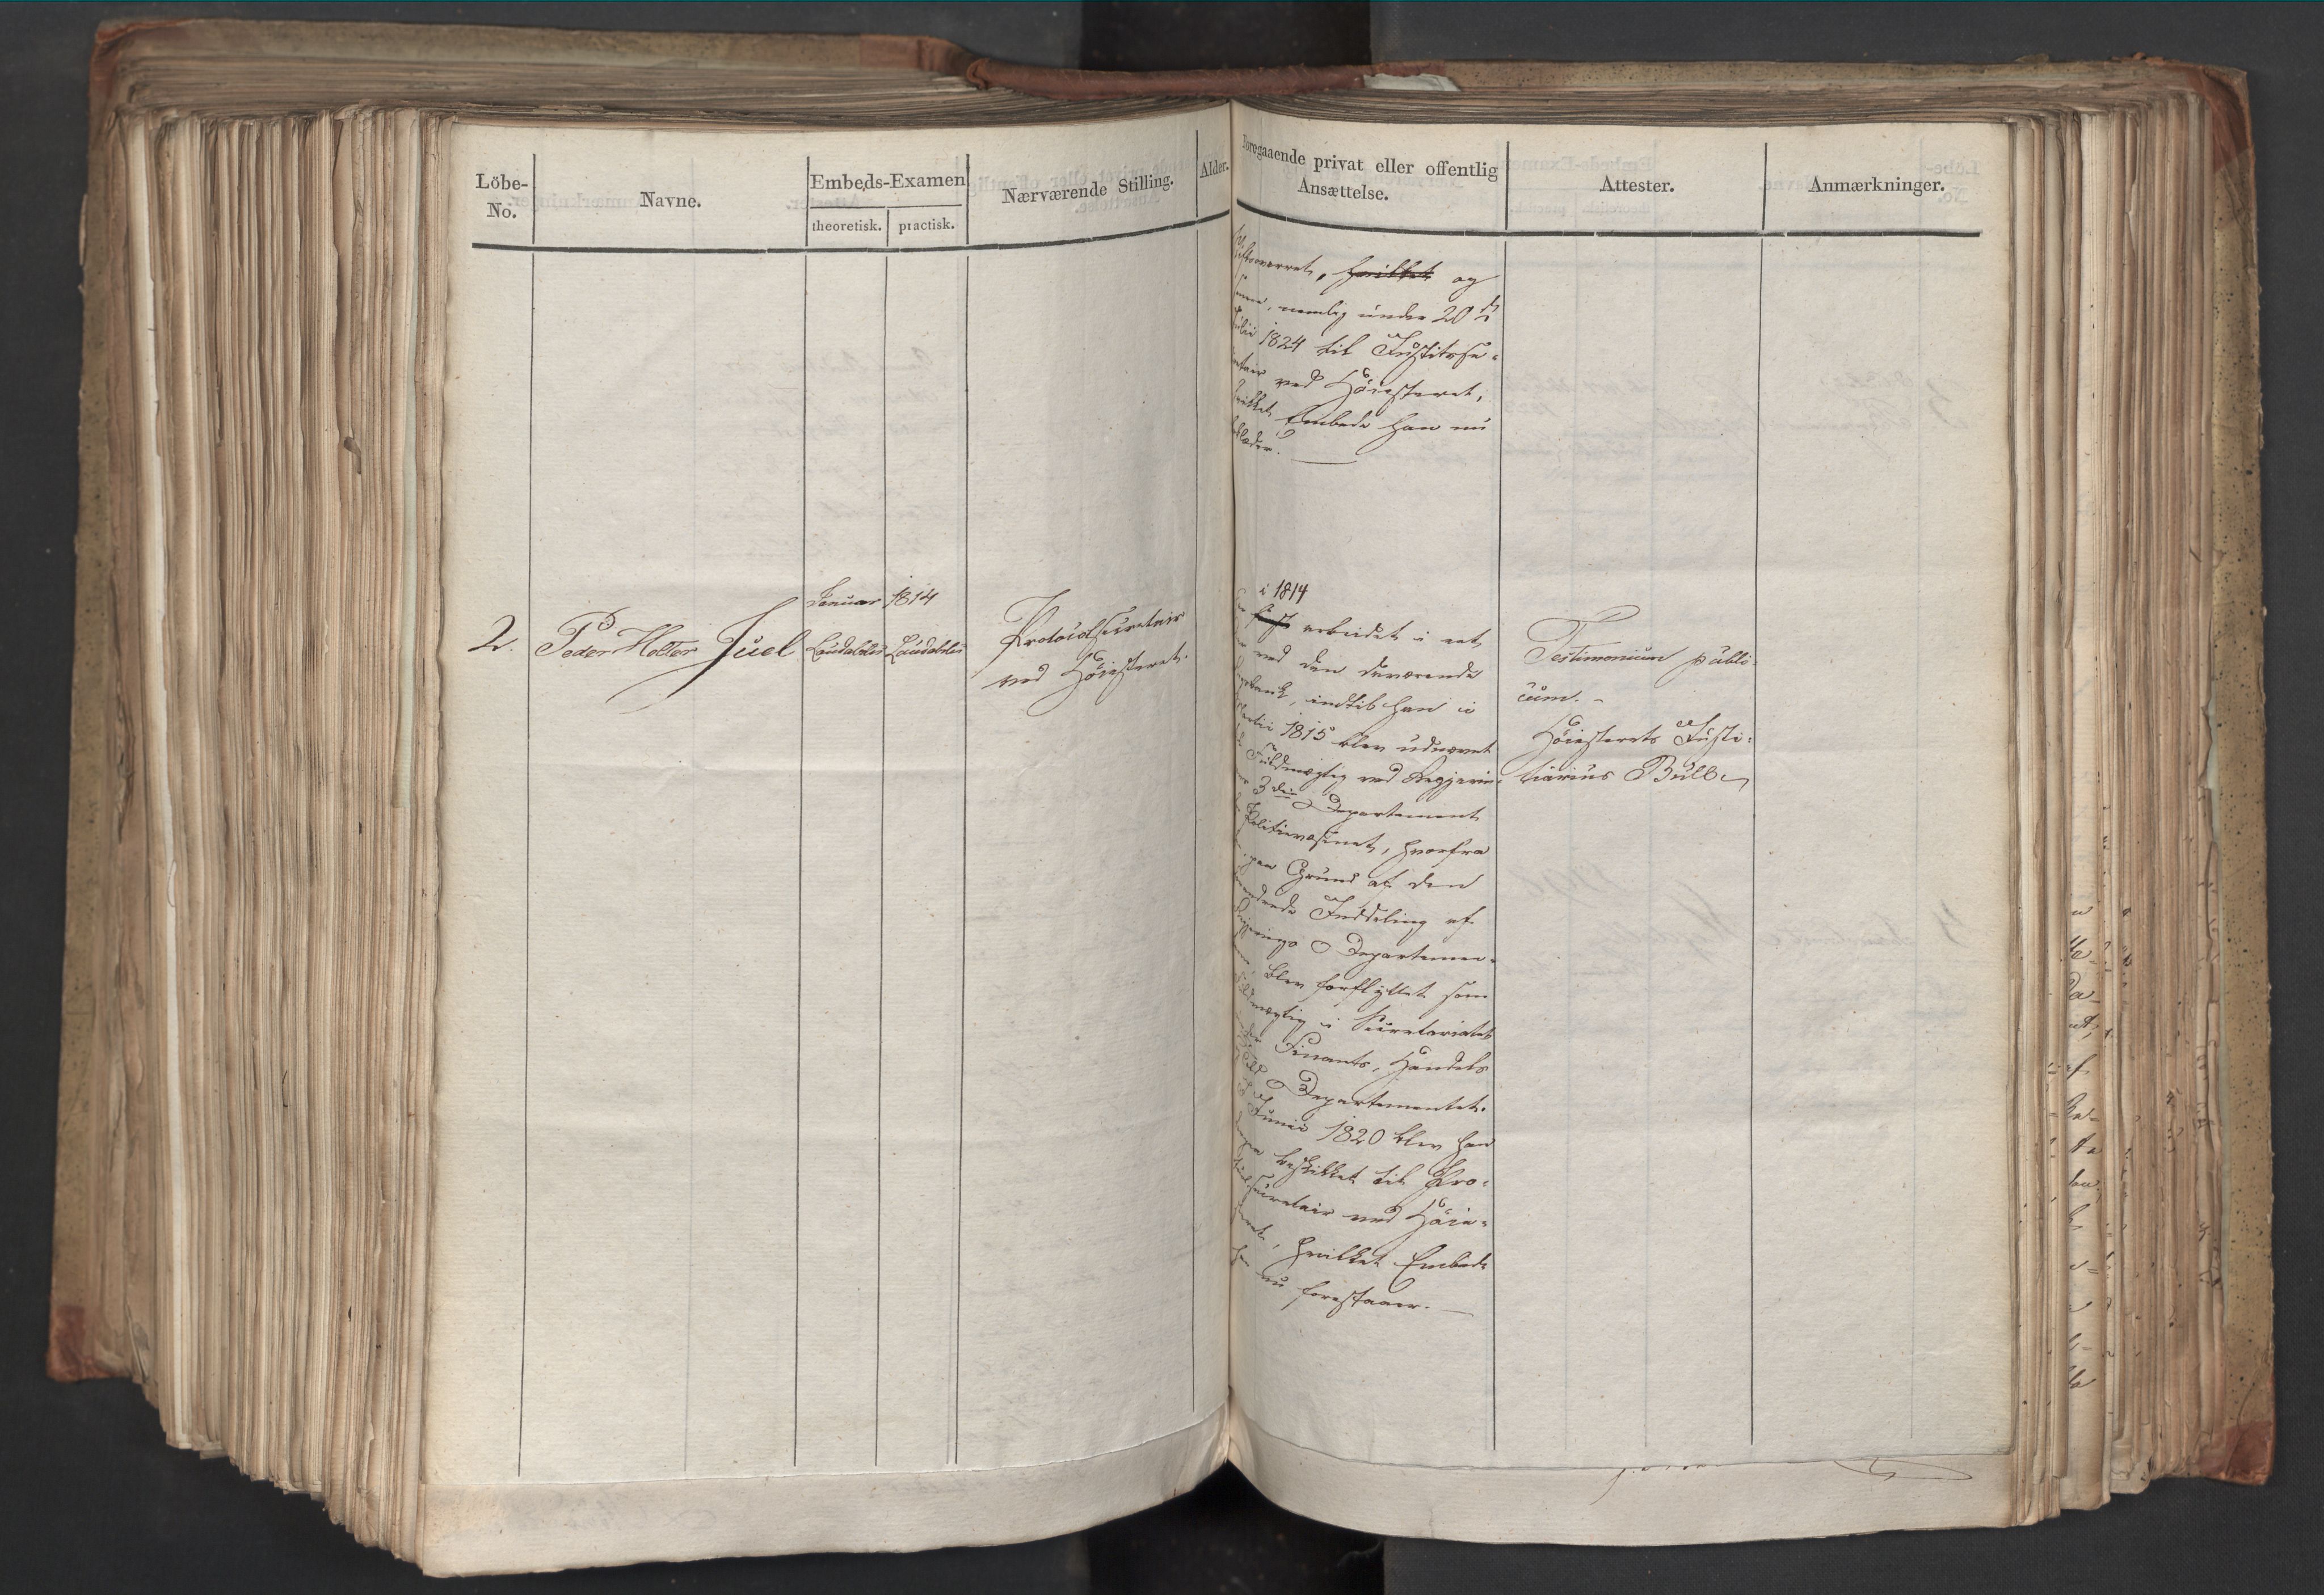 Löbe-
No.
Navne.
Embeds-Examen
theoretisk. practisk.
Nærværende Stilling.
Alder.
Foregaaende privat eller offentlig
Ansættelse.
Attester.
Anmærkninger.
hvilket og
nemlig under 20 de
1824 til Justitsse-
ved Höiesteret,
Embede han nu
2. Peder Holter Juel
Januar 1814
Laudabilis Laudabilis
Protocolsecretair
ved Höiesteret.
i 1814
først arbeidet i et
ved den daværende
indtil han i
1815 blev udnævnt
Fuldmægtig ved Regjerin-
3die Departement
Politievæsenet, hvorfra
paa Grund af den
Inddeling af
Departemen-
blev forflyttet som
i Secretariatet
Finants, Handels
Departementet.
Junii 1820 blev han
beskikket til Pro-
secretair ved Höie-
hvilket Embede
nu forestaaer.
Testimonium publi-
cum.
Höiesterets Justi-
tiarius Bull